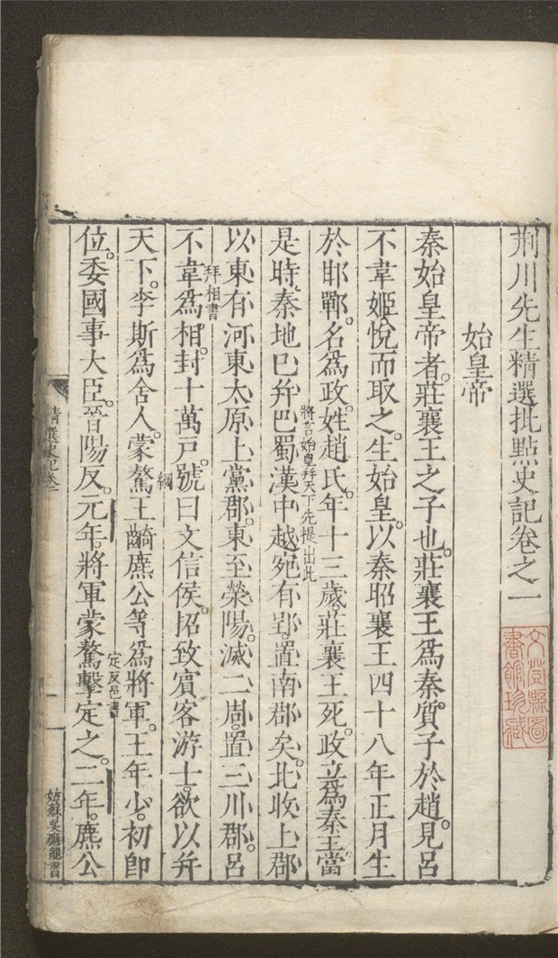 荆川先生精選批點史記卷之一
始皇帝
秦始皇帝者。莊襄王之子也。莊襄王爲秦質子於趙。見呂
不韋姬。悅而取之。生始皇。以秦昭襄王四十八年正月生
於邯鄲。名爲政。姓趙氏。年十三歲。莊襄王死。政立爲秦王。當
將言始皇幷天下先提出此
是時。秦地已幷巴蜀漢中。越宛有郢。置南郡矣。北收上郡
以東。有河東太原上黨郡。東至滎陽。滅二周。置三川郡。呂
拜相書
不韋爲相。封十萬戶。號曰文信侯。招致賓客游士。欲以幷
綱
天下。李斯爲舍人。蒙驁王齮麃公等爲將軍。王年少。初卽
定反邑書
位。委國事大臣。晉陽反。元年。將軍蒙驁擊定之。二年。麃公
精選史記卷一
一
姑蘇吳應龍書
文登縣圖
書館珍藏